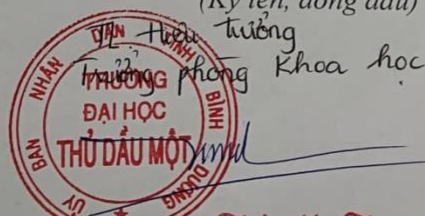 (Ký tên, đóng dấu)
TL Hiệu trưởng
Trưởng phòng Khoa học
ỦY BAN NHÂN DÂN TỈNH BÌNH DƯƠNG
TRƯỜNG
ĐẠI HỌC
THỦ DẦU MỘT